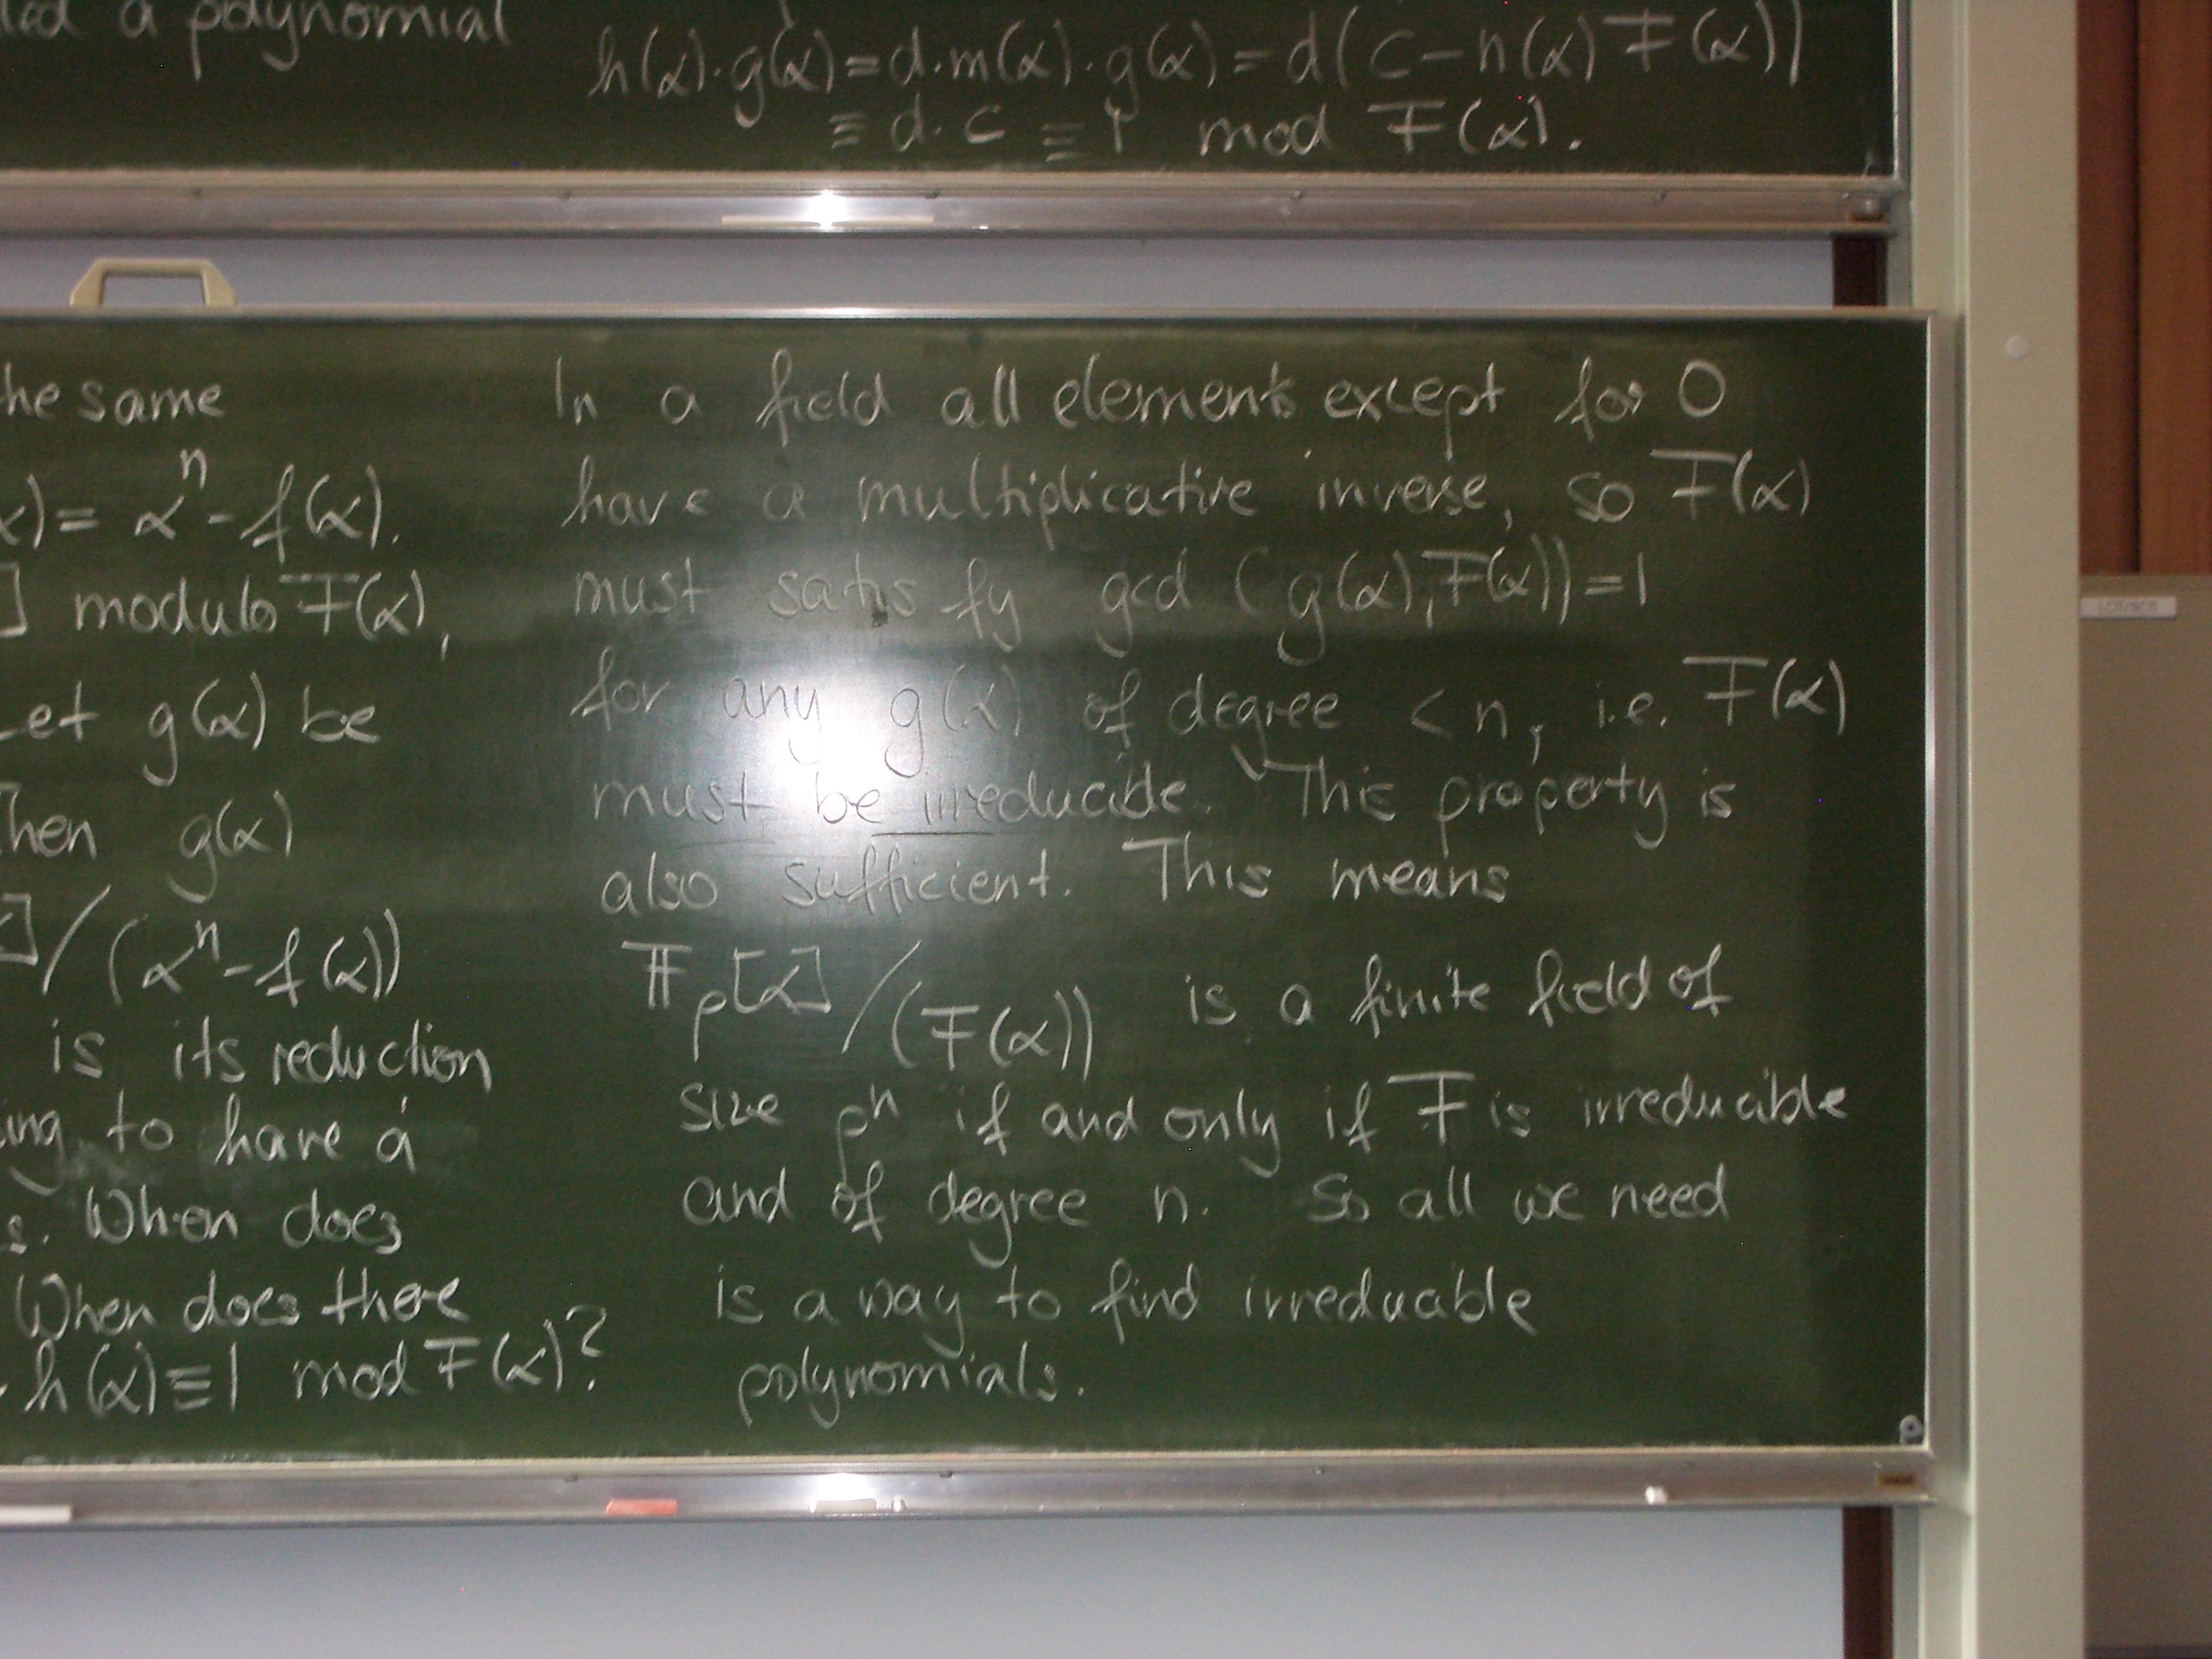 a polynomial
h(α)·g(α)=d·m(α)·g(α)=d(c-n(α)F(α))
≡ d·c ≡ 1 mod F(α).
he same
)= α^n - f(α).
] modulo F(α),
et g(α) be
hen g(α)
]/(α^n-f(α))
is its reduction
ing to have a
s. When does
When does there
h(α)≡1 mod F(α)?
In a field all elements except for 0
have a multiplicative inverse, so F(α)
must satisfy gcd (g(α),F(α))=1
for any g(α) of degree < n, i.e. F(α)
must be irreducible. This property is
also sufficient. This means
𝔽_p[α]/(F(α)) is a finite field of
size p^n if and only if F is irreducible
and of degree n. So all we need
is a way to find irreducable
polynomials.